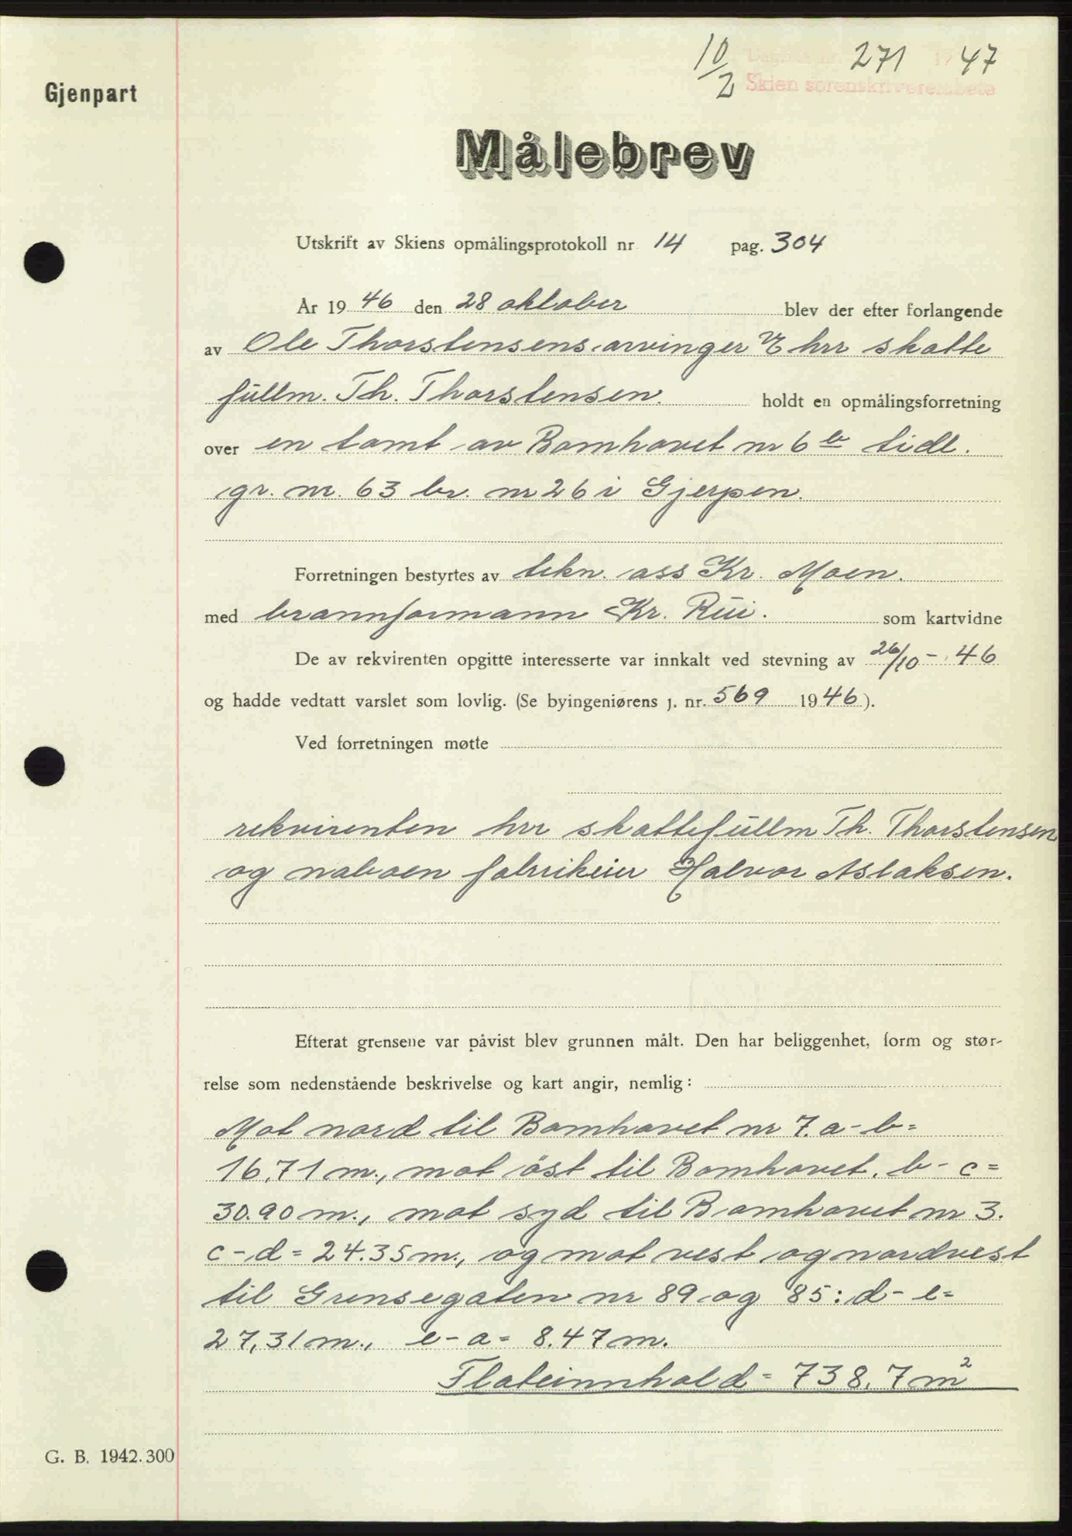 10/2 Dagbok nr. 271 1947
Skien sorenskriverembete
Gjenpart
Målebrev
Utskrift av Skiens opmålingsprotokoll nr 14 pag. 304
År 1946 den 28 oktober blev der efter forlangende
av Ole Thorstensens arvinger v/ hrr skatte
fullm. Th. Thorstensen. holdt en opmålingsforretning
over en tomt av Bomhovet nr 6 b tidl.
gr. nr. 63 br. nr 26 i Gjerpen.
Forretningen bestyrtes av tekn. ass Kr. Moen.
med brannformann Kr. Rui. som kartvidne
De av rekvirenten opgitte interesserte var innkalt ved stevning av 26/10 - 46
og hadde vedtatt varslet som lovlig. (Se byingeniørens j. nr. 569 1946).
Ved forretningen møtte
rekvirenten hrr skattefullm Th. Thorstensen
og naboen fabrikeier Halvor Aslaksen.
Efterat grensene var påvist blev grunnen målt. Den har beliggenhet, form og stør-
relse som nedenstående beskrivelse og kart angir, nemlig:
Mot nord til Bomhovet nr 7. a - b =
16,71 m., mot öst til Bomhovet. b - c =
30.90 m., mot syd til Bomhovet nr 3.
c - d = 24.35 m., og mot vest og nordvest
til Grensegaten nr 89 og 85: d - e =
27,31 m., e - a = 8.47 m.
Flateinnhold = 738,7 m²
G. B. 1942.300